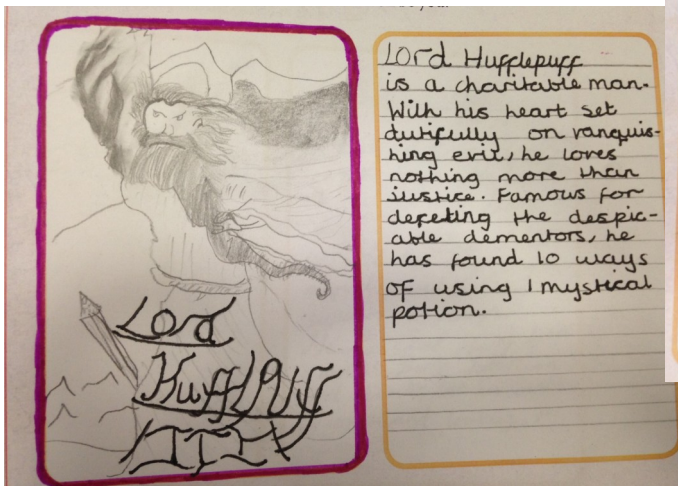 Lord
Hufflpuff
III
Lord Hufflepuff
is a charitable man.
With his heart set
dutifully on vanquis-
hing evil, he loves
nothing more than
justice. Famous for
defeting the despic-
able dementors, he
has found 10 ways
of using 1 mystical
potion.